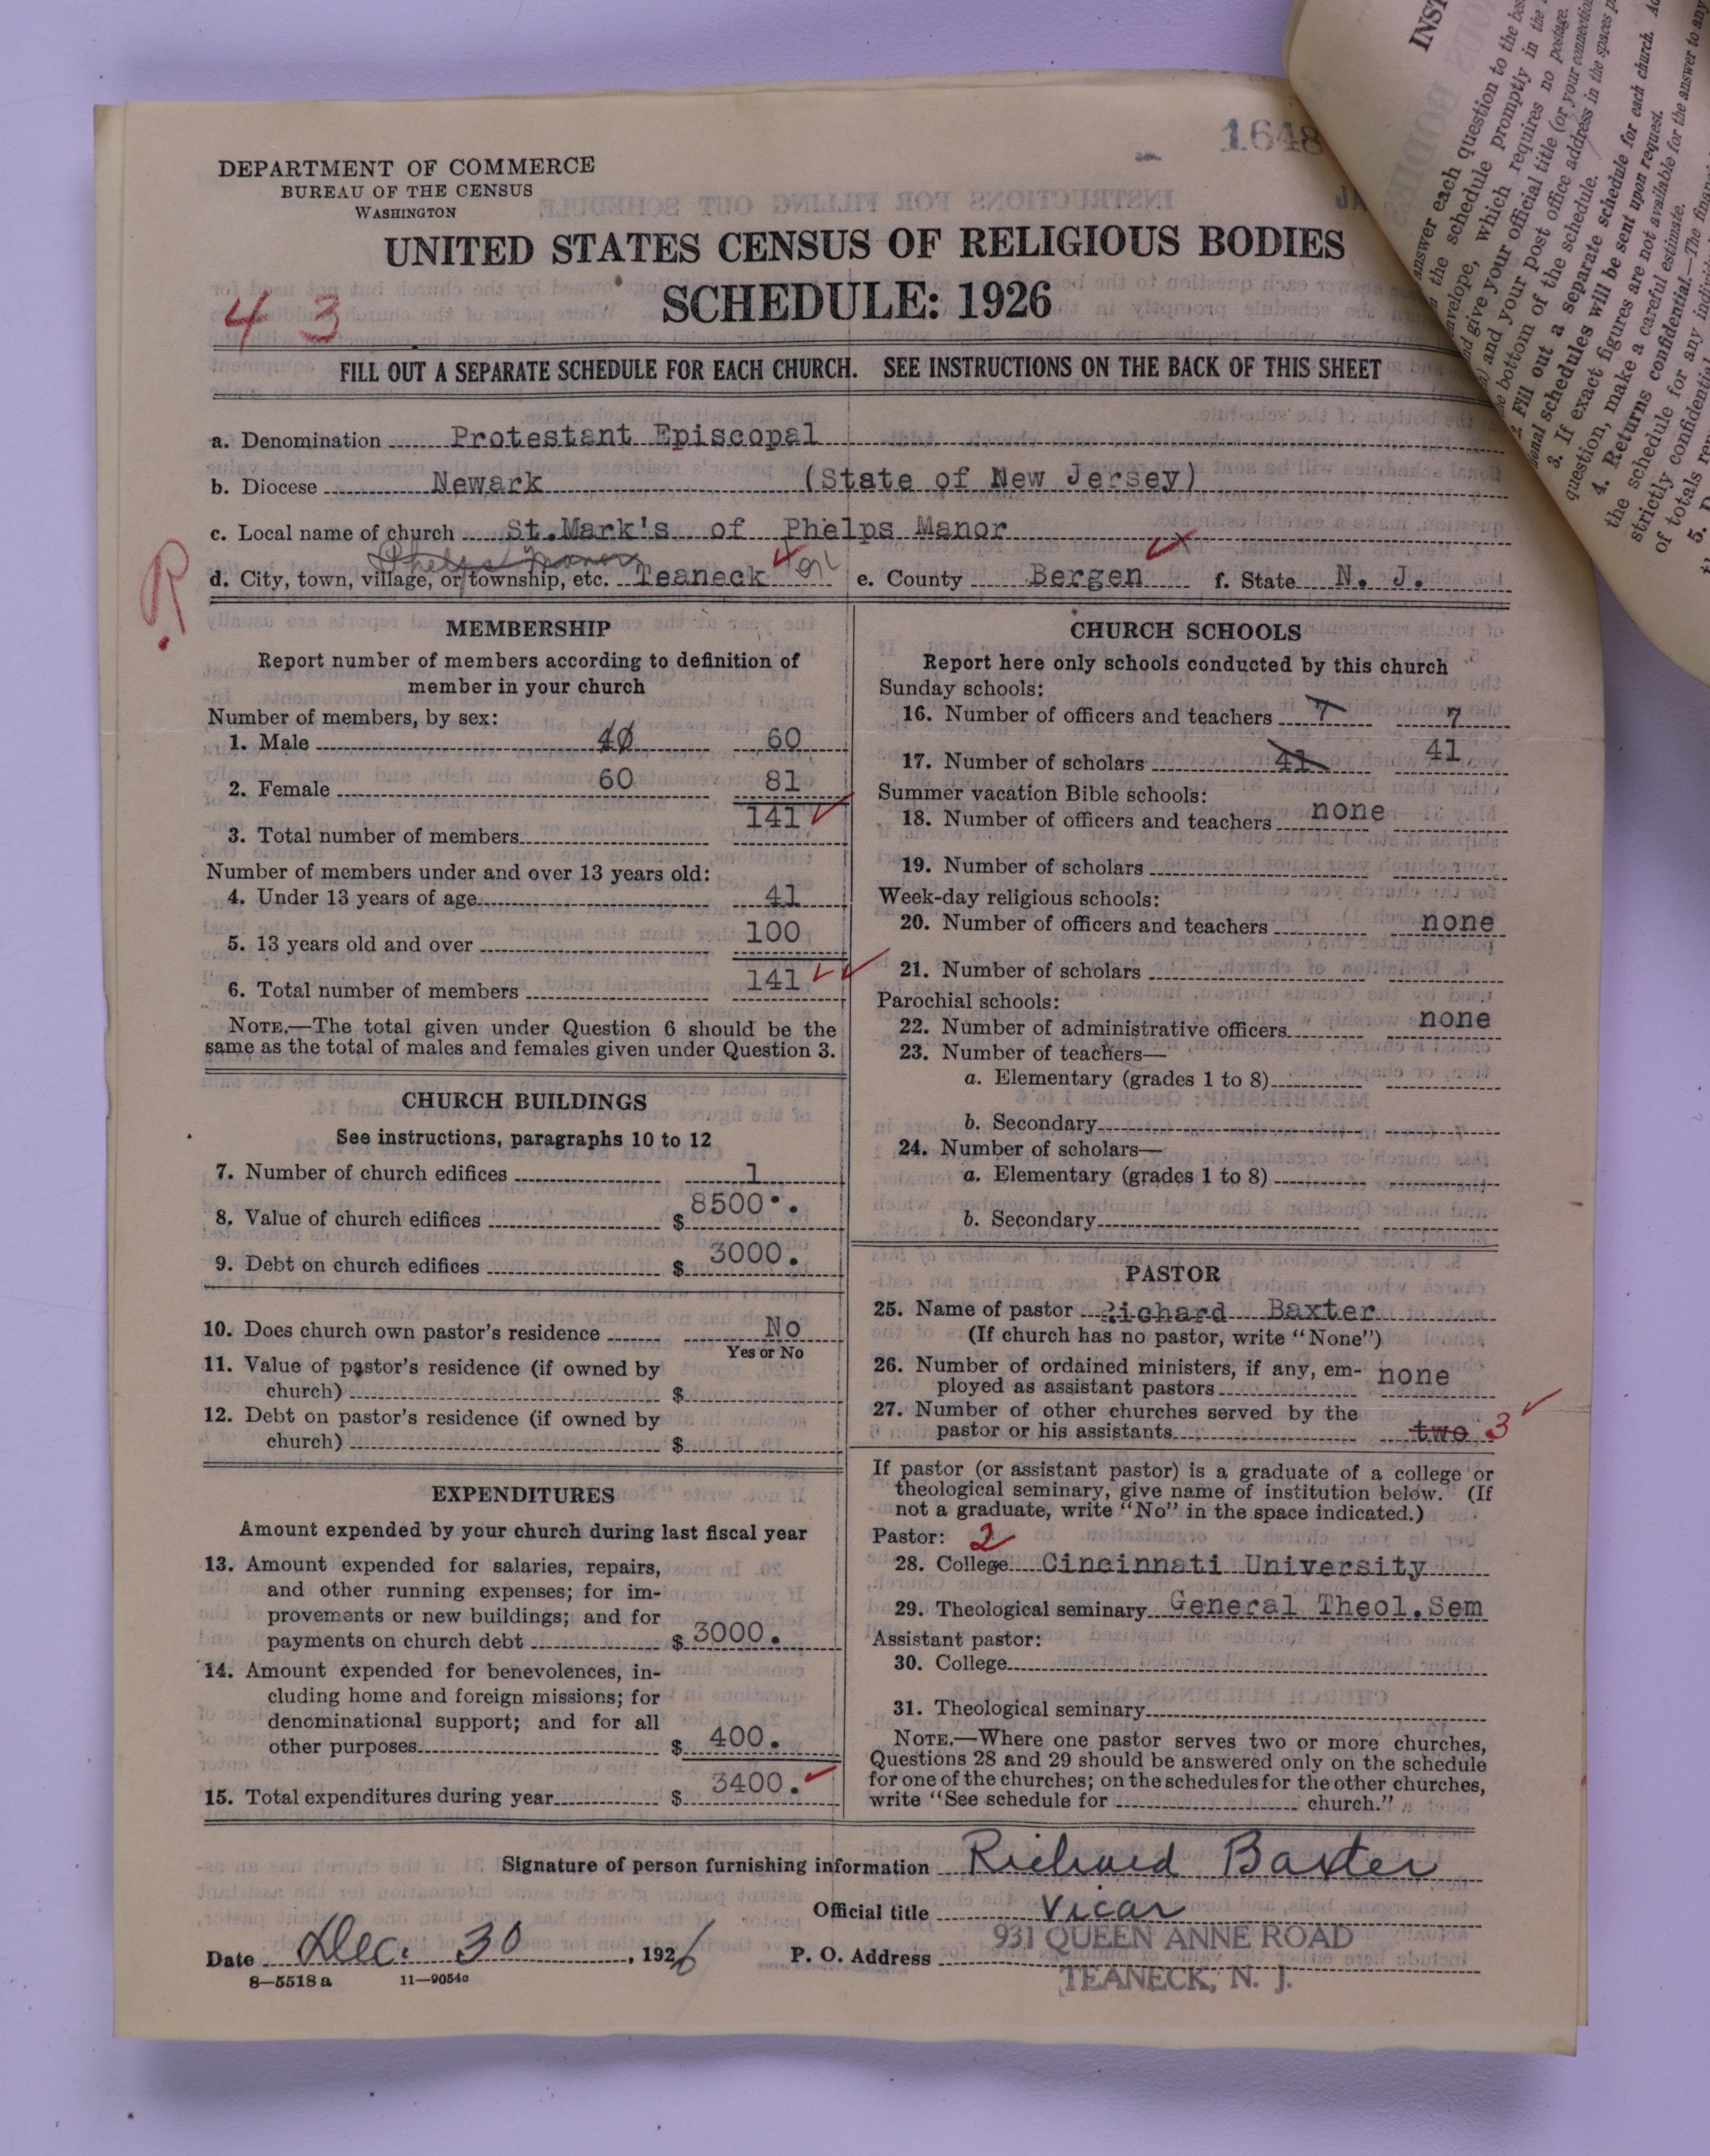 1648
DEPARTMENT OF COMMERCE
BUREAU OF THE CENSUS
WASHINGTON
UNITED STATES CENSUS OF RELIGIOUS BODIES
SCHEDULE: 1926
4 3
FILL OUT A SEPARATE SCHEDULE FOR EACH CHURCH. SEE INSTRUCTIONS ON THE BACK OF THIS SHEET
a. Denomination Protestant Episcopal
b. Diocese Newark (State of New Jersey)
c. Local name of church St.Mark's of Phelps Manor
Phelps Manor
R
d. City, town, village, or township, etc. Teaneck e. County Bergen f. State N. J.
MEMBERSHIP
Report number of members according to definition of
member in your church
Number of members, by sex:
1. Male 40 60
2. Female 60 81
3. Total number of members 141
Number of members under and over 13 years old:
4. Under 13 years of age 41
5. 13 years old and over 100
6. Total number of members 141
NOTE.—The total given under Question 6 should be the
same as the total of males and females given under Question 3.
CHURCH BUILDINGS
See instructions, paragraphs 10 to 12
7. Number of church edifices 1
8. Value of church edifices $ 8500.
9. Debt on church edifices $ 3000.
10. Does church own pastor's residence No
Yes or No
11. Value of pastor's residence (if owned by
church) $
12. Debt on pastor's residence (if owned by
church) $
EXPENDITURES
Amount expended by your church during last fiscal year
13. Amount expended for salaries, repairs,
and other running expenses; for im-
provements or new buildings; and for
payments on church debt $ 3000.
14. Amount expended for benevolences, in-
cluding home and foreign missions; for
denominational support; and for all
other purposes $ 400.
15. Total expenditures during year $ 3400.
CHURCH SCHOOLS
Report here only schools conducted by this church
Sunday schools:
16. Number of officers and teachers 7 7
17. Number of scholars 41 41
Summer vacation Bible schools:
18. Number of officers and teachers none
19. Number of scholars
Week-day religious schools:
20. Number of officers and teachers none
21. Number of scholars
Parochial schools:
22. Number of administrative officers none
23. Number of teachers—
a. Elementary (grades 1 to 8)
b. Secondary
24. Number of scholars—
a. Elementary (grades 1 to 8)
b. Secondary
PASTOR
25. Name of pastor Richard Baxter
(If church has no pastor, write "None")
26. Number of ordained ministers, if any, em-
ployed as assistant pastors none
27. Number of other churches served by the
pastor or his assistants two 3
If pastor (or assistant pastor) is a graduate of a college or
theological seminary, give name of institution below. (If
not a graduate, write "No" in the space indicated.)
Pastor: 2
28. College Cincinnati University
29. Theological seminary General Theol.Sem
Assistant pastor:
30. College
31. Theological seminary
NOTE.—Where one pastor serves two or more churches,
Questions 28 and 29 should be answered only on the schedule
for one of the churches; on the schedules for the other churches,
write "See schedule for church."
Signature of person furnishing information Richard Baxter
Official title Vicar
Date Dec. 30, 1926 P. O. Address 931 QUEEN ANNE ROAD
TEANECK, N. J.
8—5518 a 11—9054a